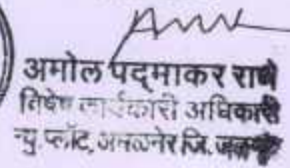 अमोल पद्माकर राणे
विशेष कार्यकारी अधिकारी
न्यु प्लॉट, अमळनेर जि. जळगांव